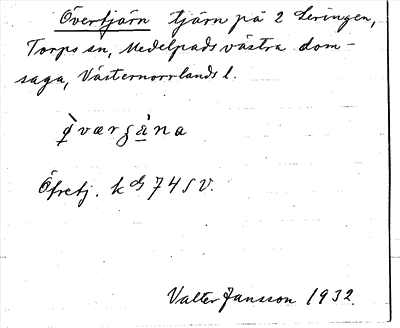 Övertjärn tjärn på 2 Leringen,
Torps sn, Medelpads västra dom-
saga, Västernorrlands l.
Öfvetj. kbl 74 SV.
Valter Jansson 1932.